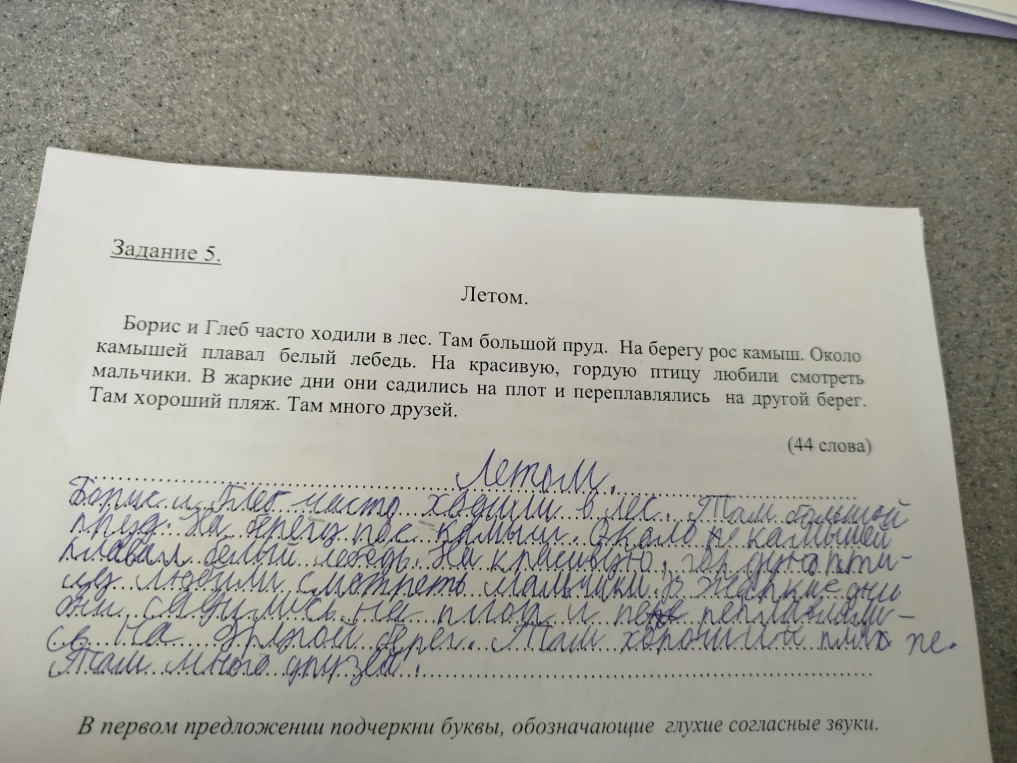 Задание 5.
Летом.
Борис и Глеб часто ходили в лес. Там большой пруд. На берегу рос камыш. Около
камышей плавал белый лебедь. На красивую, гордую птицу любили смотреть
мальчики. В жаркие дни они садились на плот и переплавлялись на другой берег.
Там хороший пляж. Там много друзей.
(44 слова)
Летом.
Борис и Глеб часто ходили в лес. Там большой
пруд. На берегу рос камыш. Около камышей
плавал белый лебедь. На красивую, гордую пти-
цу любили смотреть мальчики. В жаркие дни
они садились на плот и
сь на другой берег. Там хороший
Там много друзей.
В первом предложении подчеркни буквы, обозначающие глухие согласные звуки.